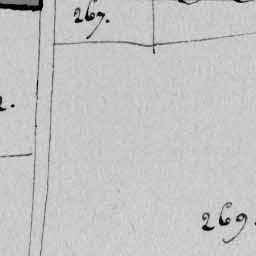 267.
2.
269.